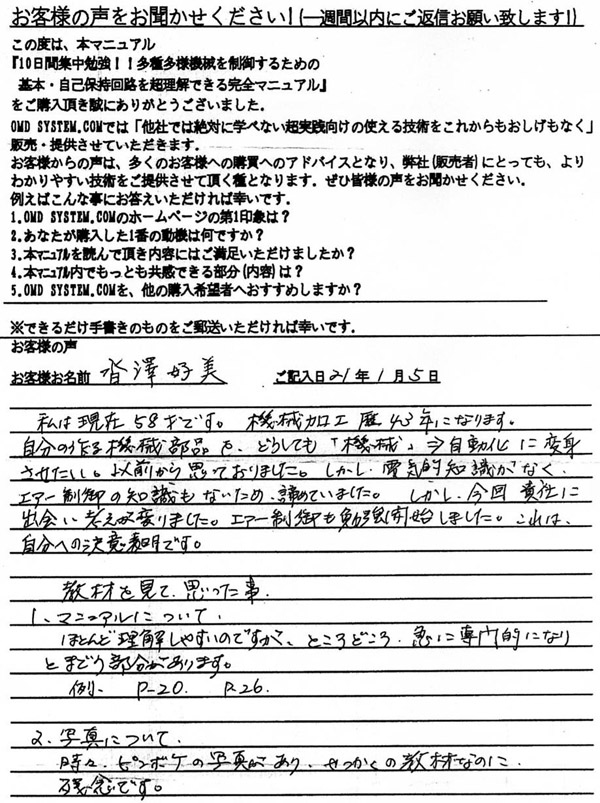 お客様の声をお聞かせください!(一週間以内にご返信お願い致します!)
この度は、本マニュアル
『10日間集中勉強!!多種多様機械を制御するための
基本・自己保持回路を超理解できる完全マニュアル』
をご購入頂き誠にありがとうございました。
OMD SYSTEM.COMでは「他社では絶対に学べない超実践向けの使える技術をこれからもおしげもなく」
販売・提供させていただきます。
お客様からの声は、多くのお客様への購買へのアドバイスとなり、弊社(販売者)にとっても、より
わかりやすい技術をご提供させて頂く種となります。ぜひ皆様の声をお聞かせください。
例えばこんな事にお答えいただければ幸いです。
1.OMD SYSTEM.COMのホームページの第1印象は?
2.あなたが購入した1番の動機は何ですか?
3.本マニュアルを読んで頂き内容にはご満足いただけましたか?
4.本マニュアル内でもっとも共感できる部分(内容)は?
5.OMD SYSTEM.COMを、他の購入希望者へおすすめしますか?
※できるだけ手書きのものをご郵送いただければ幸いです。
お客様の声
お客様お名前 沓澤好美 ご記入日21年1月5日
私は現在58才です。機械加工歴43年になります。
自分の作る機械部品を、どうしても「機械」⇒自動化に変身
させたいし。以前から思っておりました。しかし、電気的知識がなく、
エアー制御の知識もないため、諦めていました。しかし、今回貴社に
出会い考えが変りました。エアー制御も勉強開始しました。これは、
自分への決意表明です。
教材を見て、思った事、
1、マニュアルについて、
ほとんど理解しやすいのですが、ところどころ、急に専門的になり
とまどう部分があります。
例、 P-20. P.26.
2、写真について、
時々、ピンボケの写真があり、せっかくの教材なのに、
残念です。